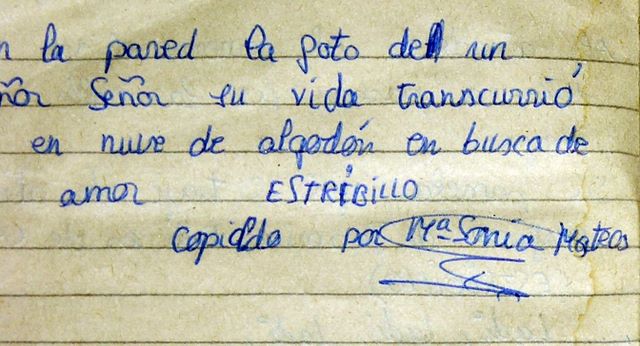 n la pared la foto del un
ñor Señor su vida transcurrió
en nuve de algodón en busca de
amor ESTRIBILLO
Copiado por Mª Sonia Mateos